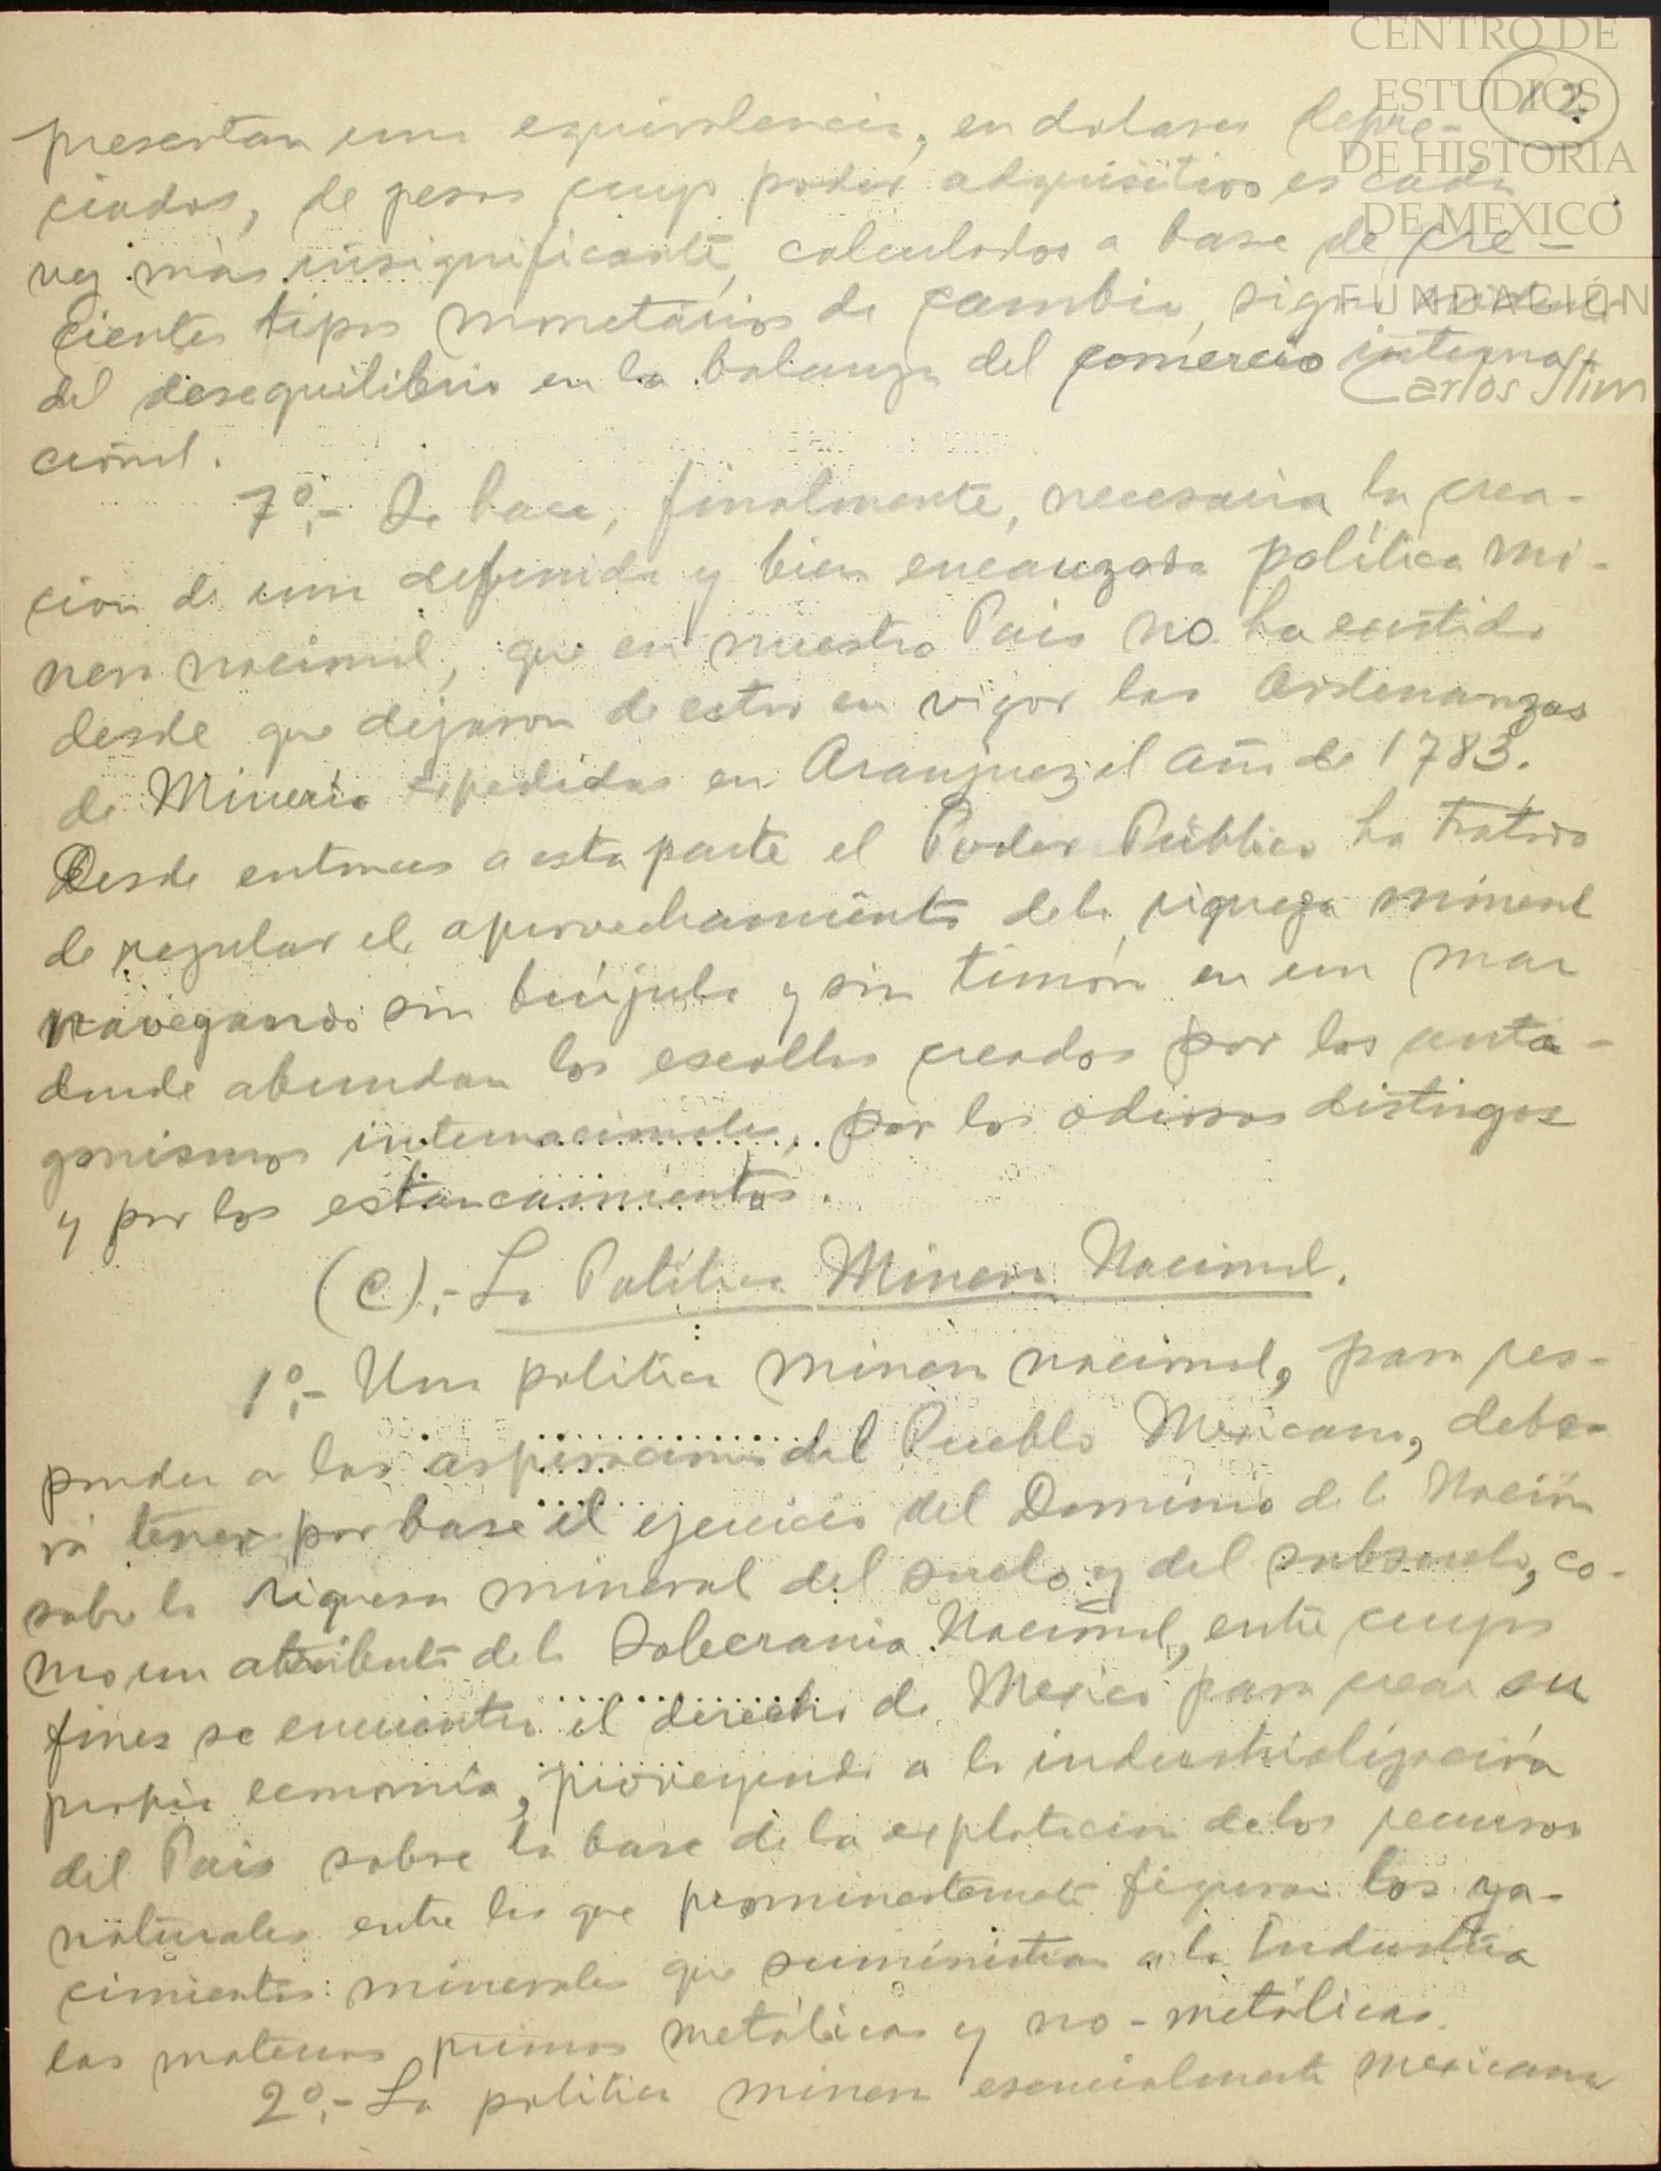 CENTRO DE
ESTUDIOS
DE HISTORIA
DE MEXICO
FUNDACIÓN
Carlos Slim
12
presentan una equivalencia, en dolares depre-
ciados, de pesos cuyo poder adquisitivo es cada
vez más insignificante, calculados a base de cre-
cientes tipos monetarios de cambio, signo
del desequilibrio en la balanza del comercio interna-
cional.
7º,- Se hace, finalmente, necesaria la crea-
cion de una definida y bien encauzada política mi-
nera nacional, que en nuestro Pais no ha existido
desde que dejaron de estar en vigor las Ordenanzas
de Minería expedidas en Aranjuez el año de 1783.
Desde entonces a esta parte el Poder Público ha tratado
de regular el aprovechamiento de la riqueza mineral
navegando sin brújula y sin timón en un mar
donde abundan los escollos creados por los anta-
gonismos internacionales, por los odiosos distingos
y por los estancamientos.
(c),- La Política Minera Nacional.
1º,- Una politica minera nacional, para res-
ponder a las aspiraciones del Pueblo Mexicano, debe-
rá tener por base el ejercicio del Dominio de la Nación
sobre la riqueza mineral del suelo y del subsuelo, co-
mo un atributo de la Soberania Nacional, entre cuyos
fines se encuentra el derecho de Mexico para crear su
propia economía, proveyendo a la industrialización
del Pais sobre la base de la explotacion de los recursos
naturales entre los que prominentemente figuran los ya-
cimientos minerales que suministran a la Industria
las materias primas metálicas y no-metálicas.
2º,- La politica minera esencialmente mexicana